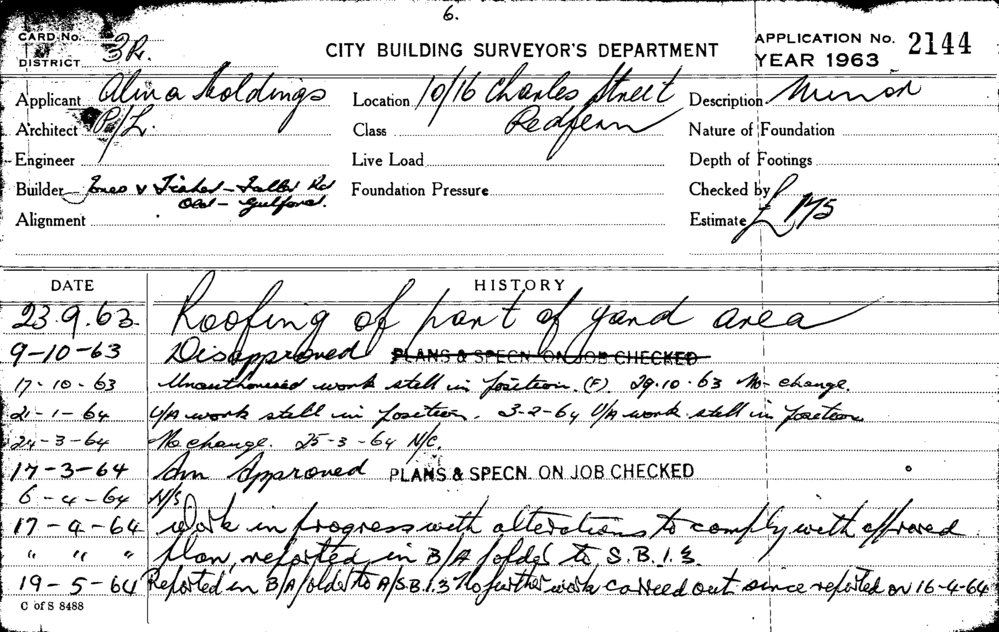 6.
CARD No.
DISTRICT 3R.
CITY BUILDING SURVEYOR'S DEPARTMENT
APPLICATION No. 2144
YEAR 1963
Applicant Alina Holdings
Location 10/16 Charles Street
Description Minor
Architect P/L.
Class Redfern
Nature of Foundation
Engineer
Live Load
Depth of Footings
Builder Jones v Fisher - Rd
Old - Guilford.
Foundation Pressure
Checked by
Alignment
Estimate £175
DATE
HISTORY
23.9.63. Roofing of part of yard area
9-10-63 Disapproved PLANS & SPECN. ON JOB CHECKED
17-10-63 Unauthorised work still in position. (F) 29.10.63 No change.
21-1-64 U/A work still in position. 3-2-64 U/A work still in position
24-3-64 No change. 25-3-64 N/C.
17-3-64 Am Approved PLANS & SPECN. ON JOB CHECKED
6-4-64 N/S
17-4-64 Work in progress with alterations to comply with approved
" " " plan, reported in B/A folder to S.B.I.3.
19-5-64 Reported in B/A folder to A/S.B.I.3 No further work carried out since reported on 16-4-64
C of S 8488